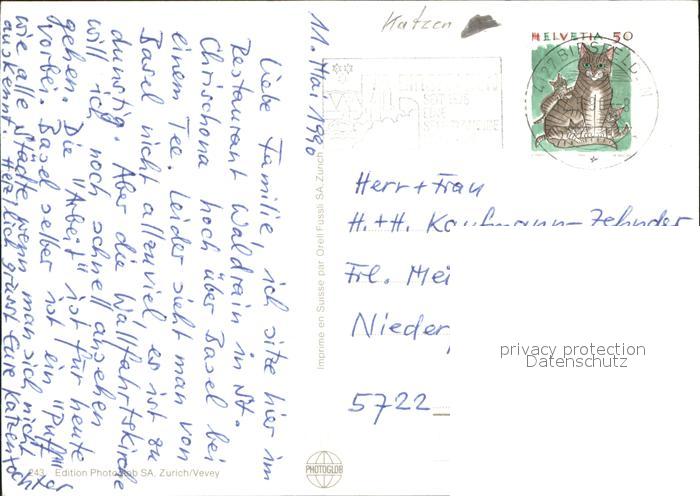 Katzen
HELVETIA 50
4127 BIRSFELDEN
11. Mai 1990
Liebe Familie, ich sitze hier im
Restaurant Waldrain in St.
Chrischona hoch über Basel bei
einem Tee. Leider sieht man von
Basel nicht allzuviel, es ist zu
dunstig. Aber die Wallfahrtskirche
will ich noch schnell ansehen
gehen. Die "Arbeit" ist für heute
vorbei. Basel selber ist ein "Puff"
wie alle Städte, wenn man sich nicht
auskennt. Herzlich grüsst Eure Katzentochter
Herr + Frau
H. + H. Kaufmann-Zehnder
Frl. Mei
Nieder
5722
privacy protection
Datenschutz
Imprime en Suisse par Orell Fussli SA, Zurich
243 Edition Photoglob SA, Zurich/Vevey
PHOTOGLOB